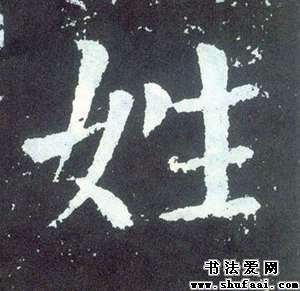 姓
书法爱网
www.shufaai.com